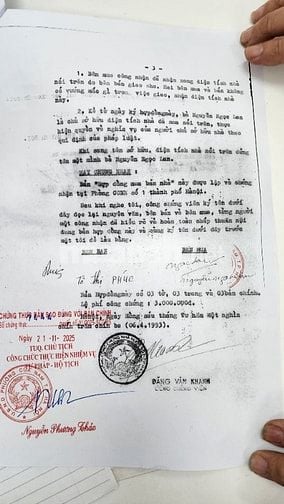 - 3 -
1. Bên mua công nhận đã nhận đúng diện tích nhà
nói trên do bên bán giao cho. Hai bên mua và bán không
có vướng mắc gì trong việc giao, nhận diện tích nhà
này.
2. Kể từ ngày ký hợp đồng này, bà Nguyễn Ngọc Lan
là chủ sở hữu diện tích nhà đã mua nói trên, thực
hiện quyền và nghĩa vụ của người chủ sở hữu nhà theo
qui định của pháp luật.
Khi sang tên sở hữu, diện tích nhà nói trên đứng
tên một mình bà Nguyễn Ngọc Lan.
bản "Hợp đồng mua bán nhà" này được lập và chứng
nhận tại Phòng CCNN số 1 thành phố Hànội.
Sau khi nghe tôi, công chứng viên ký tên dưới
đây đọc lại nguyên văn, bên bán và bên mua, từng người
một công nhận đã hiểu rõ và hoàn toàn chấp thuận nội
dung bản hợp đồng này và cùng ký tên dưới đây trước
mặt tôi để làm bằng.
BÊN BÁN BÊN MUA
Tô Thị PHÚC
Bản Hợp đồng này có 03 tờ, 03 trang và 03 bản chính
Lệ phí công chứng : 3.000.000đ.
Hànội, Ngày mùng sáu tháng Tư năm một nghìn
chín trăm chín ba (06.4.1993).
CHỨNG THỰC BẢN SAO ĐÚNG VỚI BẢN CHÍNH
Ngày 21-11-2025
TUQ. CHỦ TỊCH
CÔNG CHỨC THỰC HIỆN NHIỆM VỤ
TƯ PHÁP - HỘ TỊCH
ĐẶNG VĂN KHANH
CÔNG CHỨNG VIÊN
Nguyễn Phương Thảo